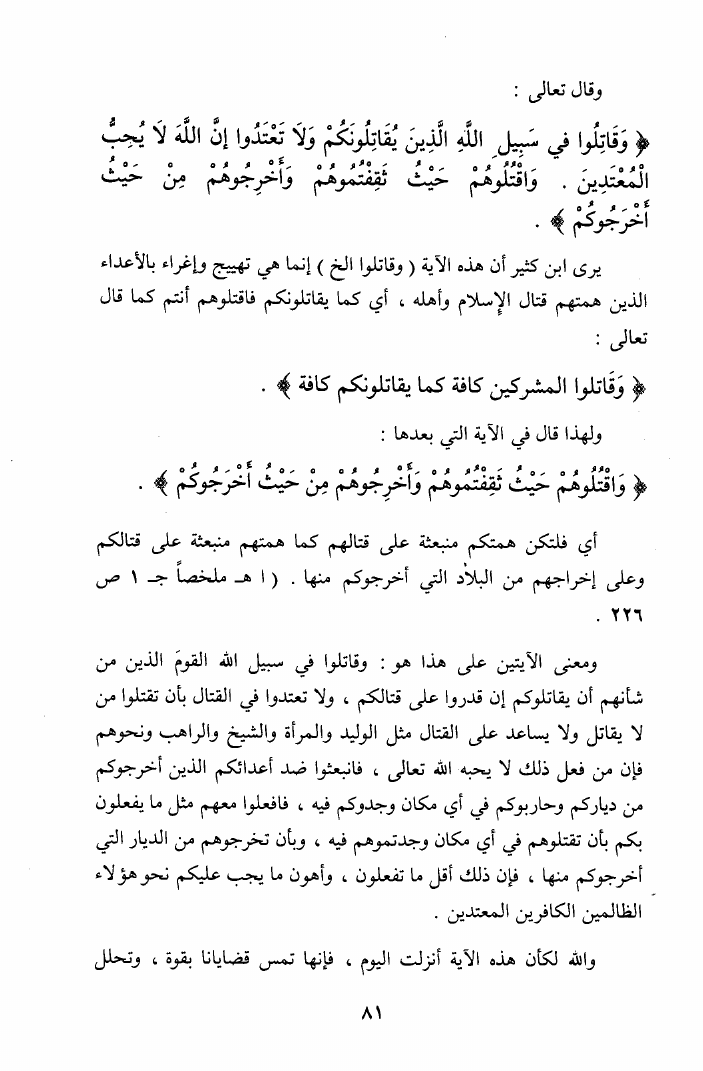 وقال تعالى :
﴿ وَقَاتِلُوا في سَبِيلِ اللَّهِ الَّذِينَ يُقَاتِلُونَكُمْ وَلَا تَعْتَدُوا إنَّ اللَّهَ لَا يُحِبُّ
الْمُعْتَدِينَ . وَاقْتُلُوهُمْ حَيْثُ ثَقِفْتُمُوهُمْ وَأَخْرِجُوهُمْ مِنْ حَيْثُ
أَخْرَجُوكُمْ ﴾ .
يرى ابن كثير أن هذه الآية ( وقاتلوا الخ ) إنما هي تهييج وإغراء بالأعداء
الذين همتهم قتال الإسلام وأهله ، أي كما يقاتلونكم فاقتلوهم أنتم كما قال
تعالى :
﴿ وَقَاتلوا المشركين كافة كما يقاتلونكم كافة ﴾ .
ولهذا قال في الآية التي بعدها :
﴿ وَاقْتُلُوهُمْ حَيْثُ ثَقِفْتُمُوهُمْ وَأَخْرِجُوهُمْ مِنْ حَيْثُ أَخْرَجُوكُمْ ﴾ .
أي فلتكن همتكم منبعثة على قتالهم كما همتهم منبعثة على قتالكم
وعلى إخراجهم من البلاد التي أخرجوكم منها . ( ا هـ ملخصاً جـ ١ ص
٢٢٦ .
ومعنى الآيتين على هذا هو : وقاتلوا في سبيل الله القومَ الذين من
شأنهم أن يقاتلوكم إن قدروا على قتالكم ، ولا تعتدوا في القتال بأن تقتلوا من
لا يقاتل ولا يساعد على القتال مثل الوليد والمرأة والشيخ والراهب ونحوهم
فإن من فعل ذلك لا يحبه الله تعالى ، فانبعثوا ضد أعدائكم الذين أخرجوكم
من دياركم وحاربوكم في أي مكان وجدوكم فيه ، فافعلوا معهم مثل ما يفعلون
بكم بأن تقتلوهم في أي مكان وجدتموهم فيه ، وبأن تخرجوهم من الديار التي
أخرجوكم منها ، فإن ذلك أقل ما تفعلون ، وأهون ما يجب عليكم نحو هؤلاء
الظالمين الكافرين المعتدين .
والله لكأن هذه الآية أنزلت اليوم ، فإنها تمس قضايانا بقوة ، وتحلل
٨١